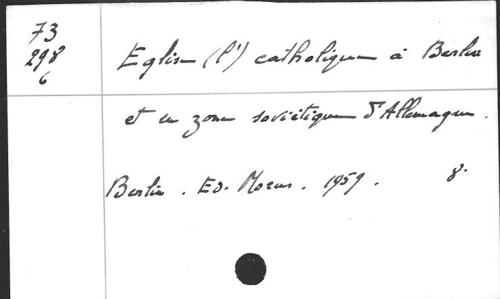 73
298
6
Eglise (l') catholique à Berlin
et en zone soviétique d'Allemagne.
Berlin. Ed. Morus. 1959. 8°